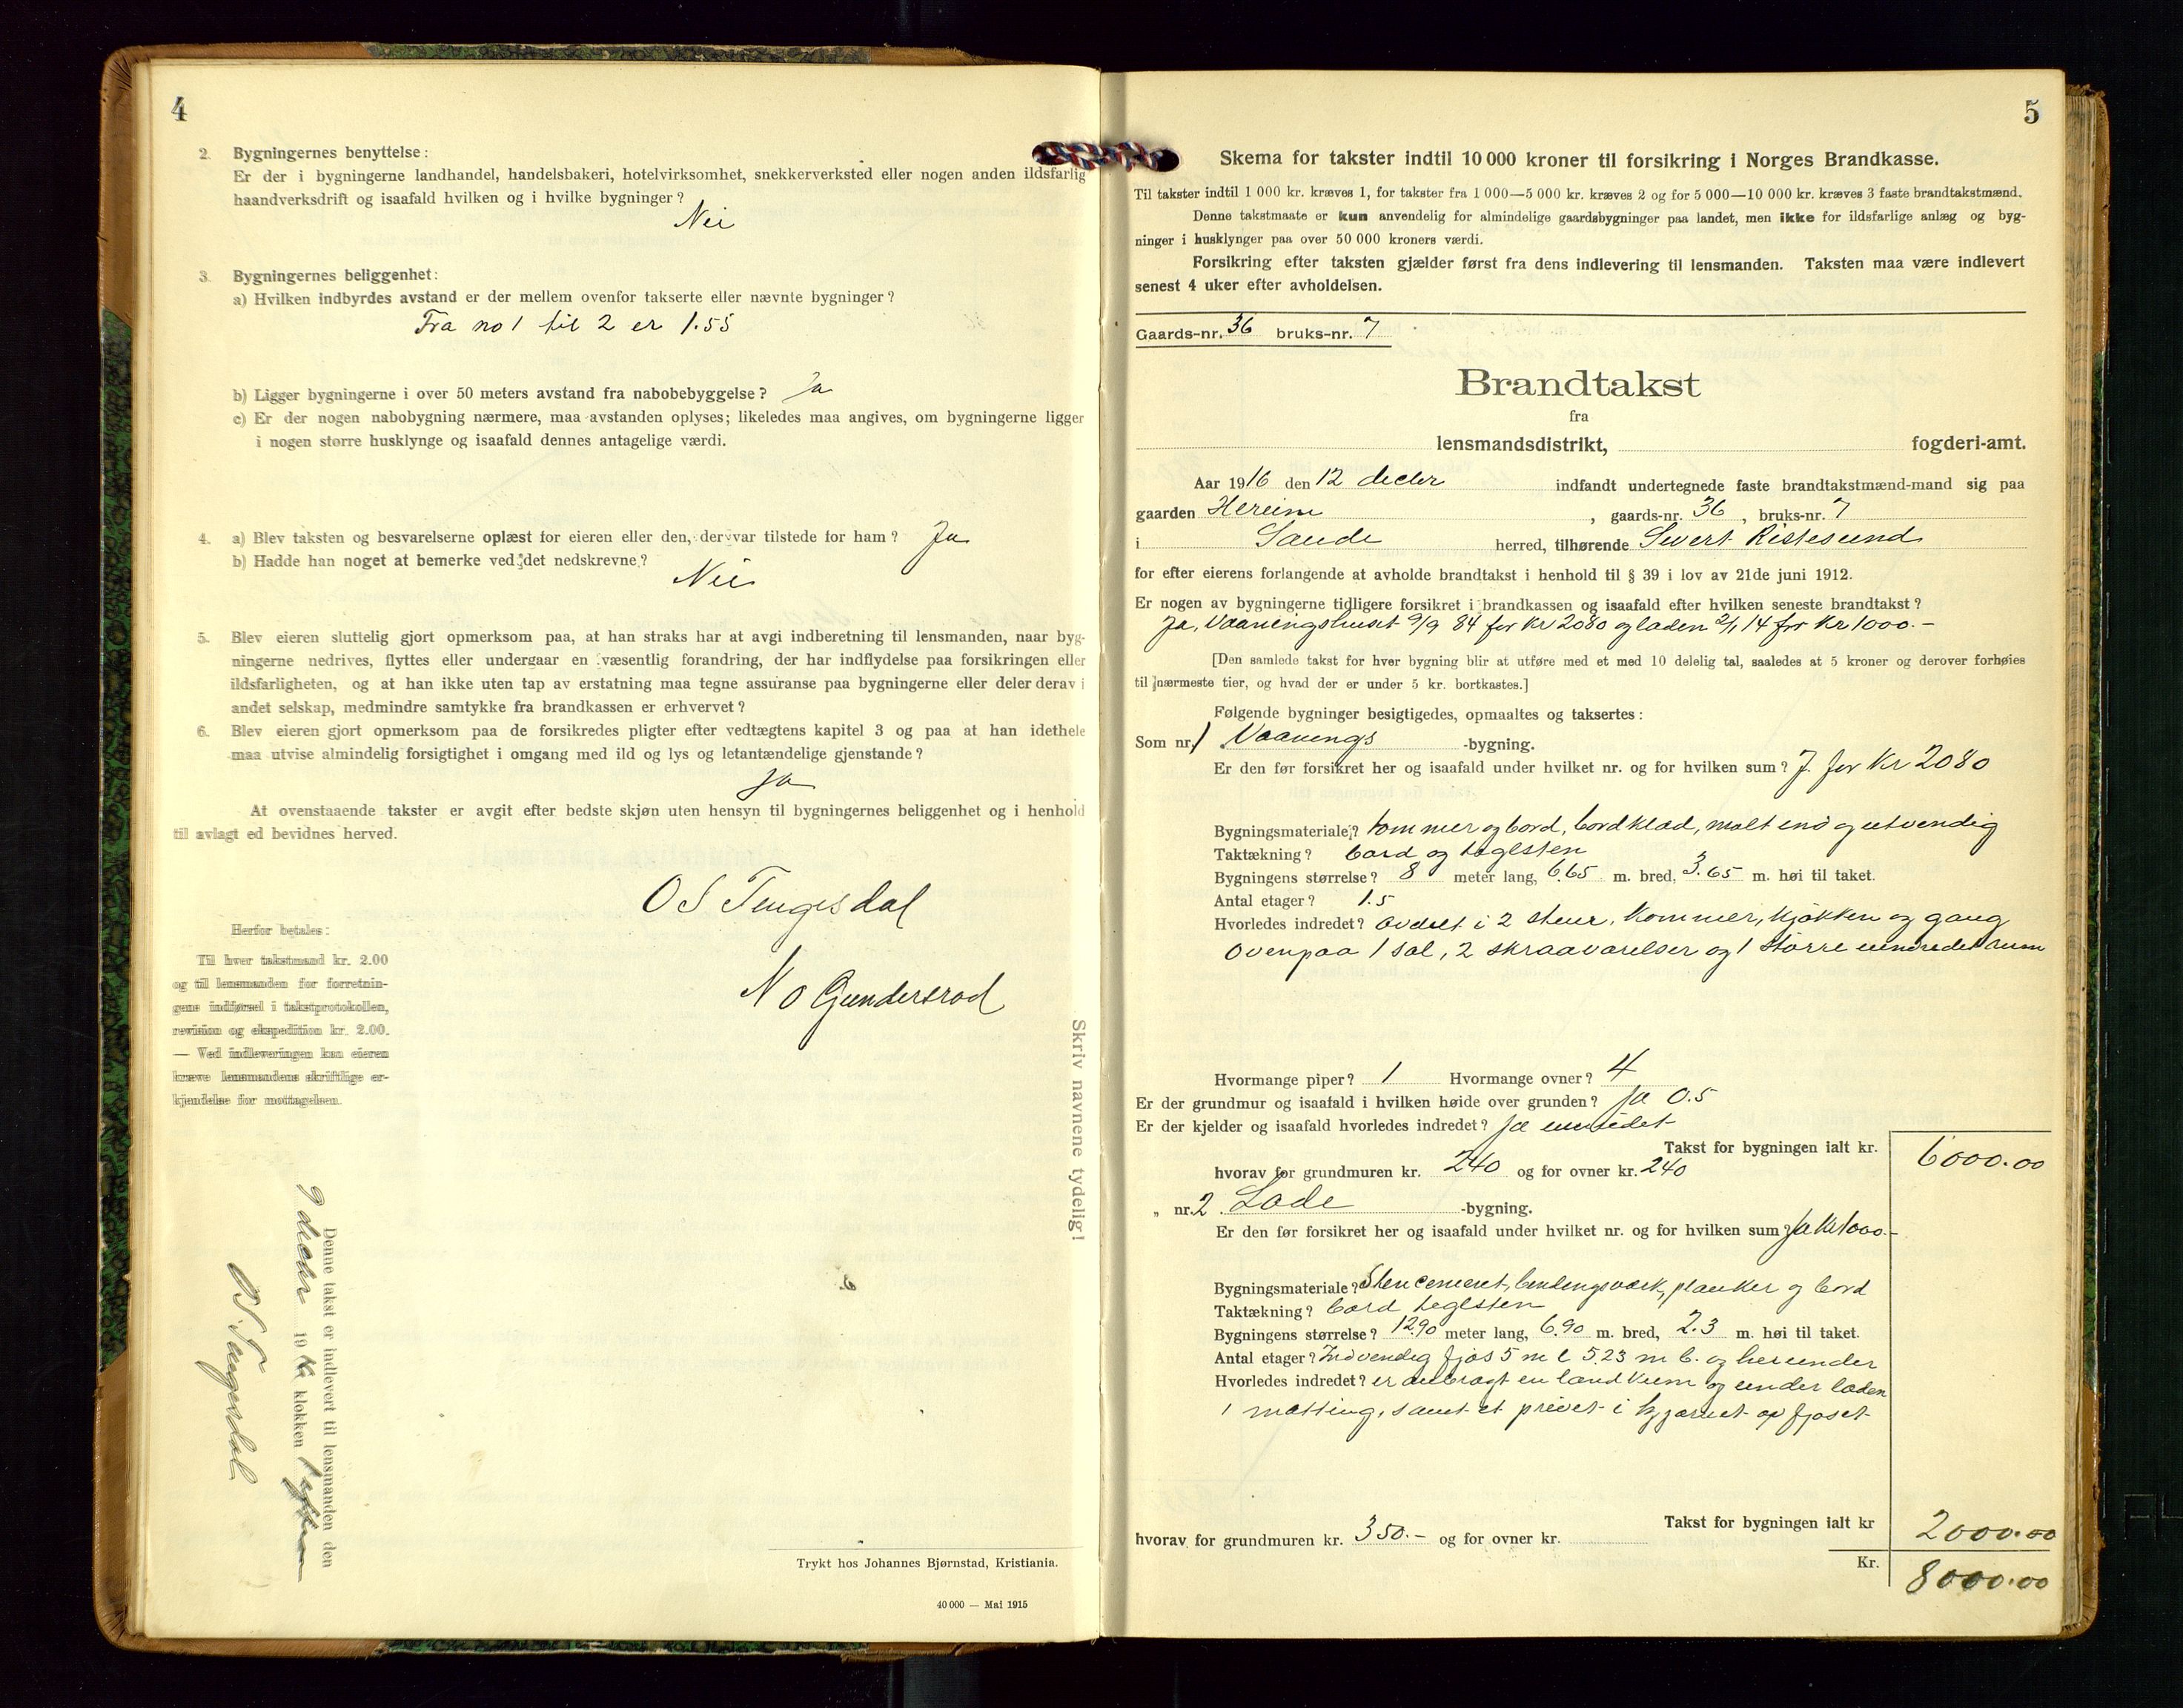 4
2. Bygningernes benyttelse:
Er der i bygningerne landhandel, handelsbakeri, hotelvirksomhet, snekkerverksted eller nogen anden ildsfarlig
haandverksdrift og isaafald hvilken og i hvilke bygninger?
Nei
3. Bygningernes beliggenhet:
a) Hvilken indbyrdes avstand er der mellem ovenfor takserte eller nævnte bygninger?
Fra no 1 til 2 er 1.55
b) Ligger bygningerne i over 50 meters avstand fra nabobebyggelse? Ja
c) Er der nogen nabobygning nærmere, maa avstanden oplyses; likeledes maa angives, om bygningerne ligger
i nogen større husklynge og isaafald dennes antagelige værdi.
4. a) Blev taksten og besvarelserne oplæst for eieren eller den, der var tilstede for ham? Ja
b) Hadde han noget at bemerke ved det nedskrevne?
Nei
5. Blev eieren sluttelig gjort opmerksom paa, at han straks har at avgi indberetning til lensmanden, naar byg-
ningerne nedrives, flyttes eller undergaar en væsentlig forandring, der har indflydelse paa forsikringen eller
ildsfarligheten, og at han ikke uten tap av erstatning maa tegne assuranse paa bygningerne eller deler derav i
andet selskap, medmindre samtykke fra brandkassen er erhvervet?
6. Blev eieren gjort opmerksom paa de forsikredes pligter efter vedtægtens kapitel 3 og paa at han idethele
maa utvise almindelig forsigtighet i omgang med ild og lys og letantændelige gjenstande?
Ja
At ovenstaaende takster er avgit efter bedste skjøn uten hensyn til bygningernes beliggenhet og i henhold
til avlagt ed bevidnes herved.
O S Tengesdal
N O Gundersrod
Herfor betales:
Til hver takstmand kr. 2.00
og til lensmanden for forretnin-
gens indførsel i takstprotokollen,
revision og ekspedition kr. 2.00.
— Ved indleveringen kan eieren
kræve lensmandens skriftlige er-
kjendelse for mottagelsen.
Skriv navnene tydelig!
Denne takst er indlevert til lensmanden den
9 decbr 19 klokken 1
Trykt hos Johannes Bjørnstad, Kristiania.
40 000 — Mai 1915
5
Skema for takster indtil 10 000 kroner til forsikring i Norges Brandkasse.
Til takster indtil 1 000 kr. kræves 1, for takster fra 1 000—5 000 kr. kræves 2 og for 5 000—10 000 kr. kræves 3 faste brandtakstmænd.
Denne takstmaate er kun anvendelig for almindelige gaardsbygninger paa landet, men ikke for ildsfarlige anlæg og byg-
ninger i husklynger paa over 50 000 kroners værdi.
Forsikring efter taksten gjælder først fra dens indlevering til lensmanden. Taksten maa være indlevert
senest 4 uker efter avholdelsen.
Gaards-nr. 36 bruks-nr. 7
Brandtakst
fra
lensmandsdistrikt, fogderi-amt.
Aar 1916 den 12 decbr indfandt undertegnede faste brandtakstmænd-mand sig paa
gaarden Hereim, gaards-nr. 36, bruks-nr. 7
i Saude herred, tilhørende Sivert Ristesund
for efter eierens forlangende at avholde brandtakst i henhold til § 39 i lov av 21de juni 1912.
Er nogen av bygningerne tidligere forsikret i brandkassen og isaafald efter hvilken seneste brandtakst?
Ja, Vaaningshuset 9/9 84 for Kr 2080 og laden 2/1 14 for Kr 1000.-
[Den samlede takst for hver bygning blir at utføre med et med 10 delelig tal, saaledes at 5 kroner og derover forhøies
til nærmeste tier, og hvad der er under 5 kr. bortkastes.]
Følgende bygninger besigtigedes, opmaaltes og taksertes:
Som nr. 1 Vaanings -bygning.
Er den før forsikret her og isaafald under hvilket nr. og for hvilken sum? J. for Kr 2080
Bygningsmateriale? tommer og bord, bordklæd, malt ind og utvendig
Taktækning? bord og teglsten
Bygningens størrelse? 8 meter lang, 6.65 m. bred, 3.65 m. høi til taket.
Antal etager? 1.5
Hvorledes indredet? avdelt i 2 stuer, kammer, kjøkken og gang
ovenpaa 1 sal, 2 skraaværelser og 1 større uindredet rum
Hvormange piper? 1 Hvormange ovner? 4
Er der grundmur og isaafald i hvilken høide over grunden? Ja 0.5
Er der kjelder og isaafald hvorledes indredet? Ja
Takst for bygningen ialt kr. 6000.00
hvorav for grundmuren kr. 240 og for ovner kr. 240
„ nr. 2. Lade -bygning.
Er den før forsikret her og isaafald under hvilket nr. og for hvilken sum? Ja Kr 1000.-
Bygningsmateriale? Sten cement, bindingsværk, planker og bord
Taktækning? bord teglsten
Bygningens størrelse? 12.90 meter lang, 6.90 m. bred, 2.3 m. høi til taket.
Antal etager? Indvendig fjøs 5 m l 5.23 m b. og herunder
Hvorledes indredet? er anbragt en land kum og under laden
1 møtting, samt et privet i hjørnet av fjøset
Takst for bygningen ialt kr 2000.00
hvorav for grundmuren kr. 350.- og for ovner kr.
Kr. 8000.00